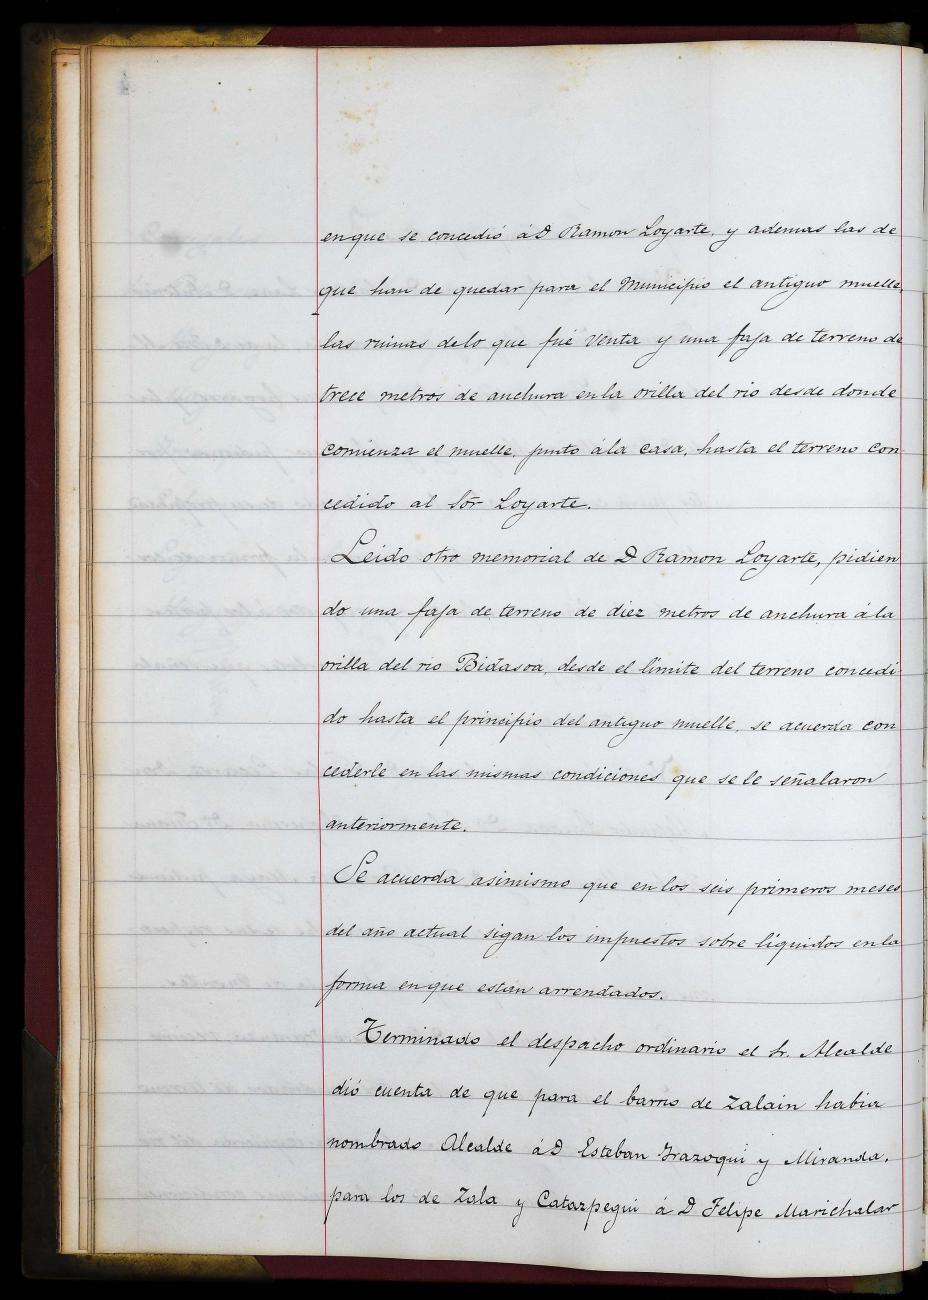 en que se concedió á D Ramon Loyarte, y ademas las de
que han de quedar para el Municipio el antiguo muelle,
las ruinas de lo que fué Venta y una faja de terreno de
trece metros de anchura en la orilla del rio desde donde
comienza el muelle, junto á la casa, hasta el terreno con
cedido al Sor Loyarte.
Leido otro memorial de D Ramon Loyarte, pidien
do una faja de terreno de diez metros de anchura á la
orilla del rio Bidasoa, desde el límite del terreno concedi
do hasta el principio del antiguo muelle, se acuerda con
cederle en las mismas condiciones que se le señalaron
anteriormente.
Se acuerda asimismo que en los seis primeros meses
del año actual sigan los impuestos sobre líquidos en la
forma en que están arrendados.
Terminado el despacho ordinario el Sr. Alcalde
dió cuenta de que para el barrio de Zalain habia
nombrado Alcalde á D Esteban Irazoqui y Miranda,
para los de Zala y Catazpegui á D Felipe Marichalar